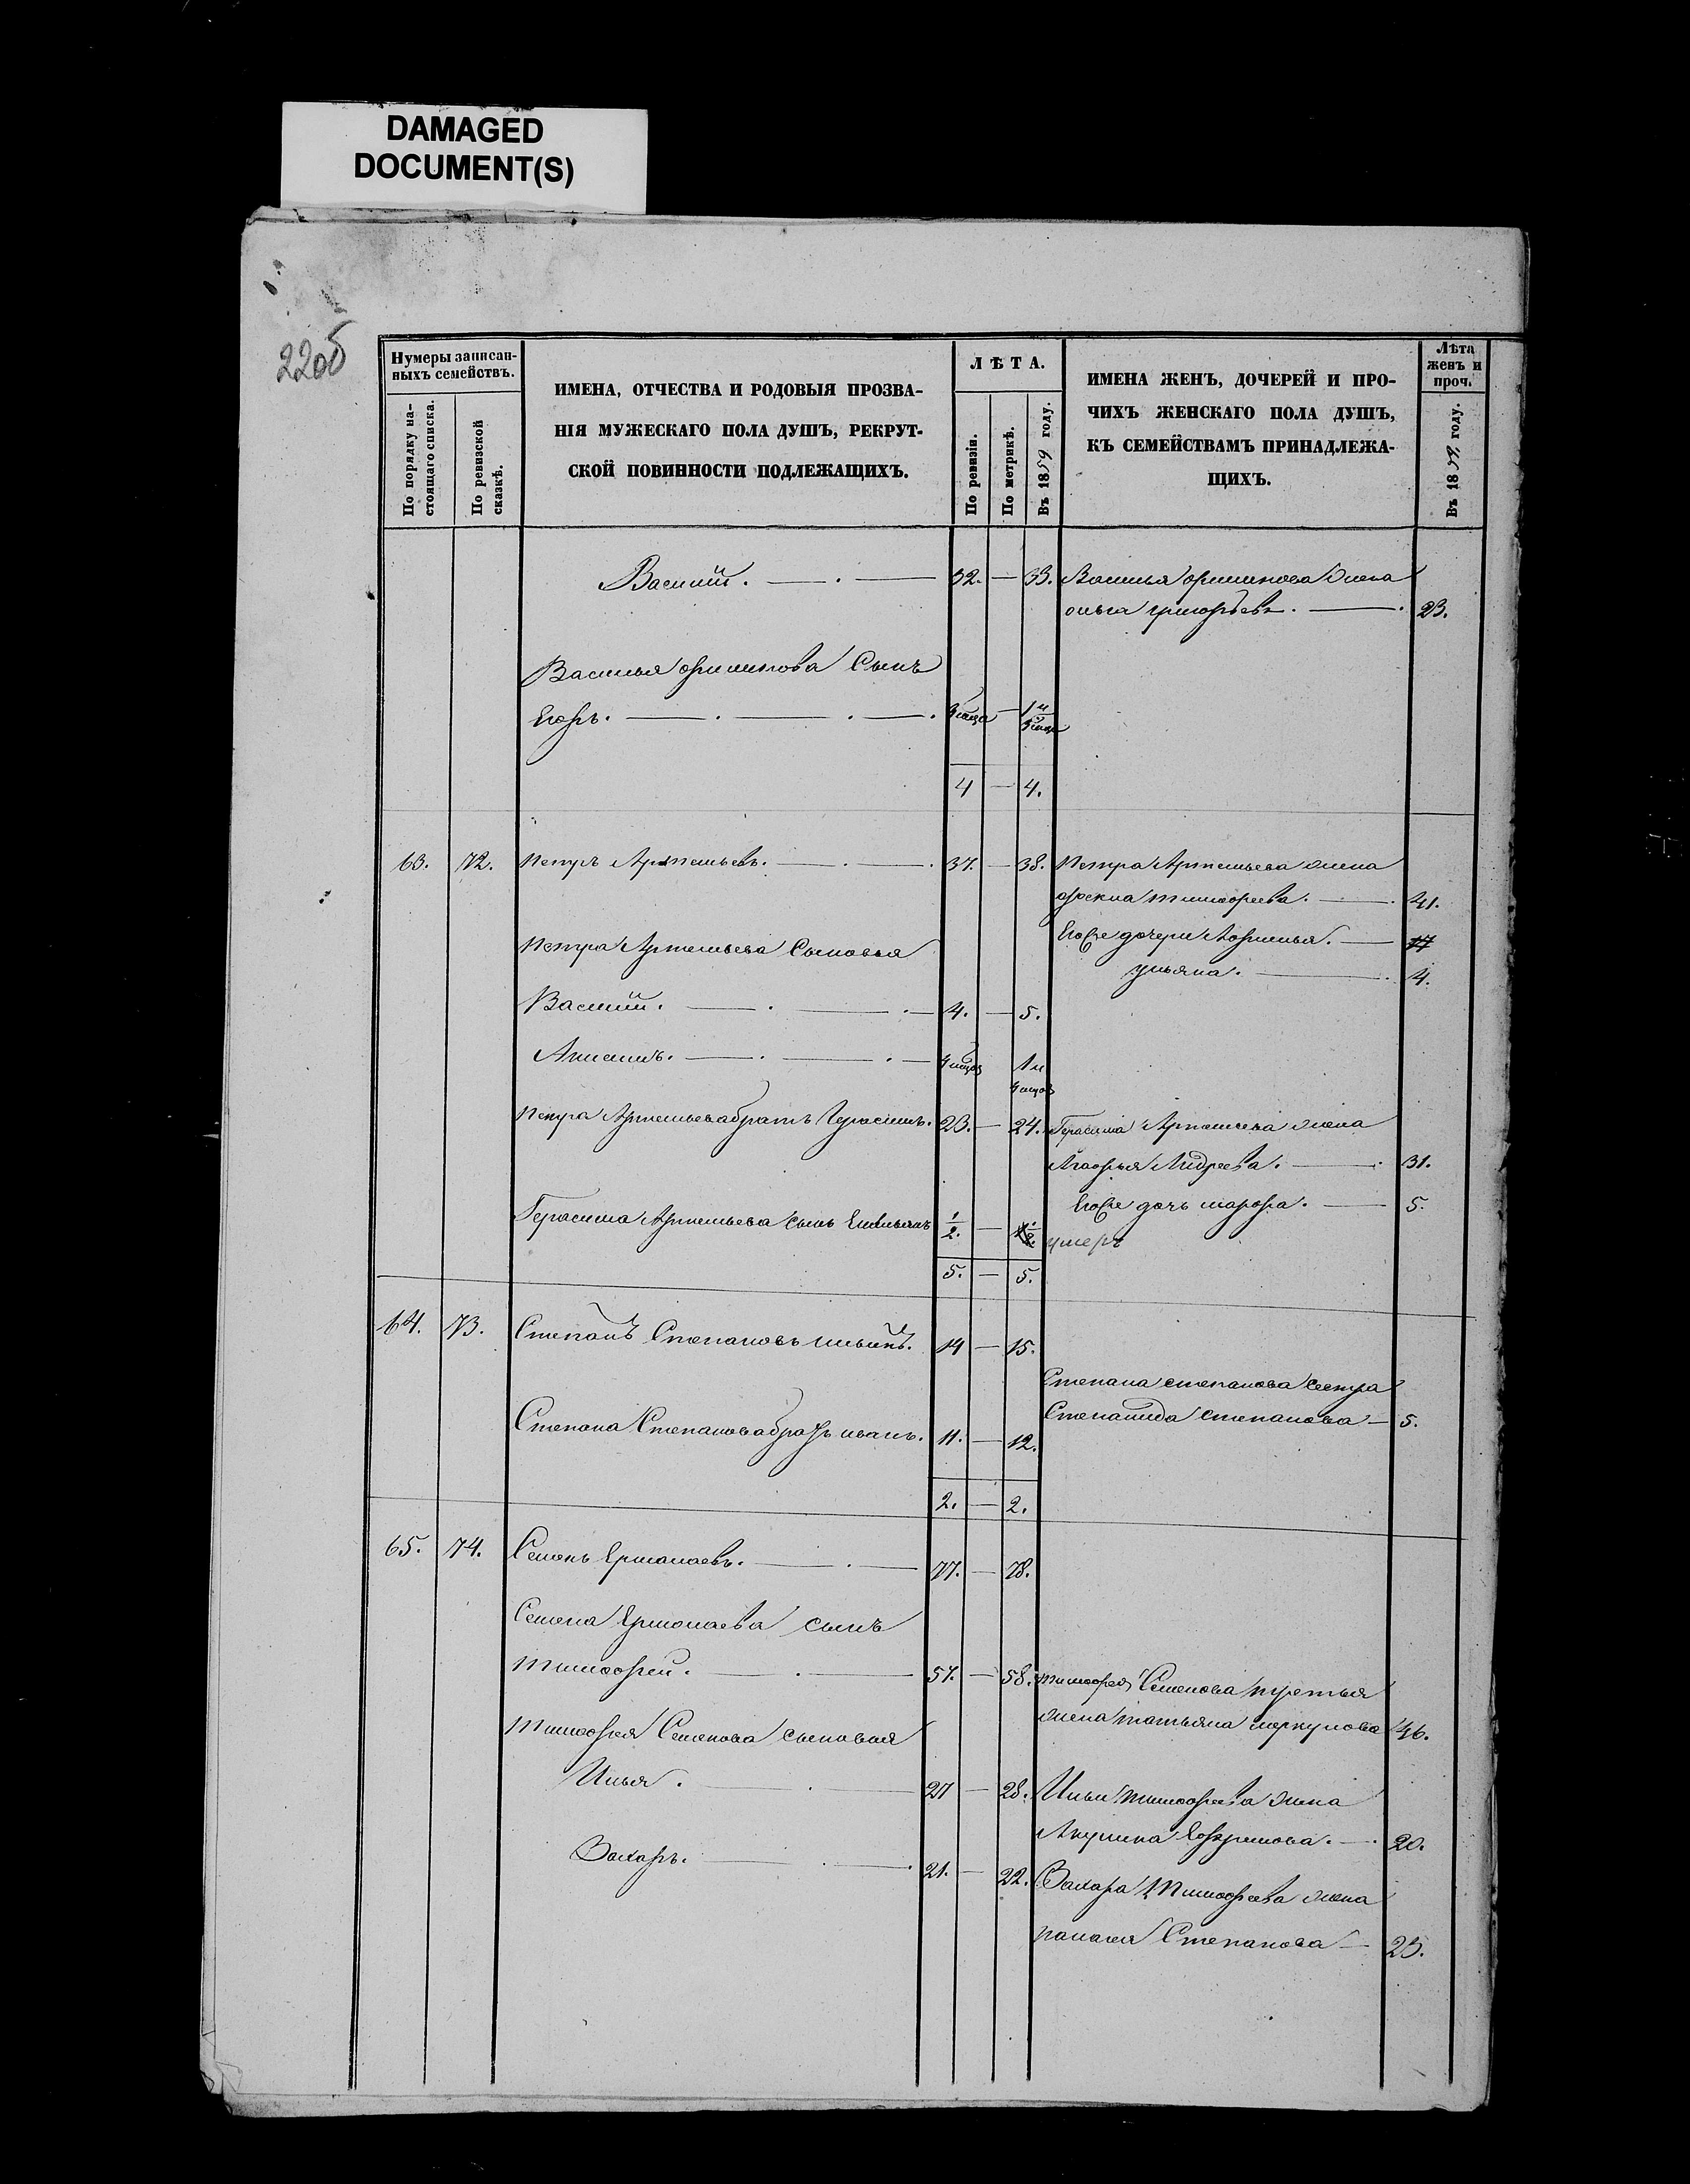 DAMAGED
DOCUMENT(S)
220б
Нумеры записан-
ныхъ семействъ.
По порядку на-
стоящаго списка.
По ревизской
сказкѣ.
ИМЕНА, ОТЧЕСТВА И РОДОВЫЯ ПРОЗВА-
НІЯ МУЖЕСКАГО ПОЛА ДУШЪ, РЕКРУТ-
СКОЙ ПОВИННОСТИ ПОДЛЕЖАЩИХЪ.
ЛѢТА.
По ревизіи.
По метрикѣ.
Въ 1859 году.
ИМЕНА ЖЕНЪ, ДОЧЕРЕЙ И ПРО-
ЧИХЪ ЖЕНСКАГО ПОЛА ДУШЪ,
КЪ СЕМЕЙСТВАМЪ ПРИНАДЛЕЖА-
ЩИХЪ.
Лѣта
женъ и
проч.
Въ 1859 году.
Василій. — 32. — 33. Василья Филипова жена
ольга григорьева. — 23.
Василья Филипова Сынъ
Егоръ.
4 — 4.
63. 72. Петръ Артемьевъ. — 37. — 38. Петра Артемьева жена
фекла тимофеева. — 41.
Петра Артемьева Сыновья
Ихъ же дочери Афимья. — 17
ульяна. — 4.
Василій. — 4. — 5.
Анисимъ.
Петра Артемьева братъ Герасимъ. 23. — 24. Герасима Артемьева жена
Агафья Андреева. — 31.
Ихъ же дочь марфа. — 5.
Герасима Артемьева сынъ Емельянъ 1/2. — умеръ
5. — 5.
64. 73. Степанъ Степановъ ильинъ. 14 — 15.
Степана степанова сестра
Степанида степанова — 5.
Степана Степанова братъ иванъ. 11. — 12.
2. — 2.
65. 74. Семенъ Ермолаевъ. — 77. — 78.
Семена Ермолаева сынъ
тимофей. — 57. — 58. тимофея Семенова третья
жена татьяна меркулова 46.
Тимофея Семенова сыновья
Илья. — 27 — 28. Ильи тимофеева жена
Акулина Ефремова. — 20.
Захаръ. — 21. — 22. Захара Тимофеева жена
палагея Степанова — 23.